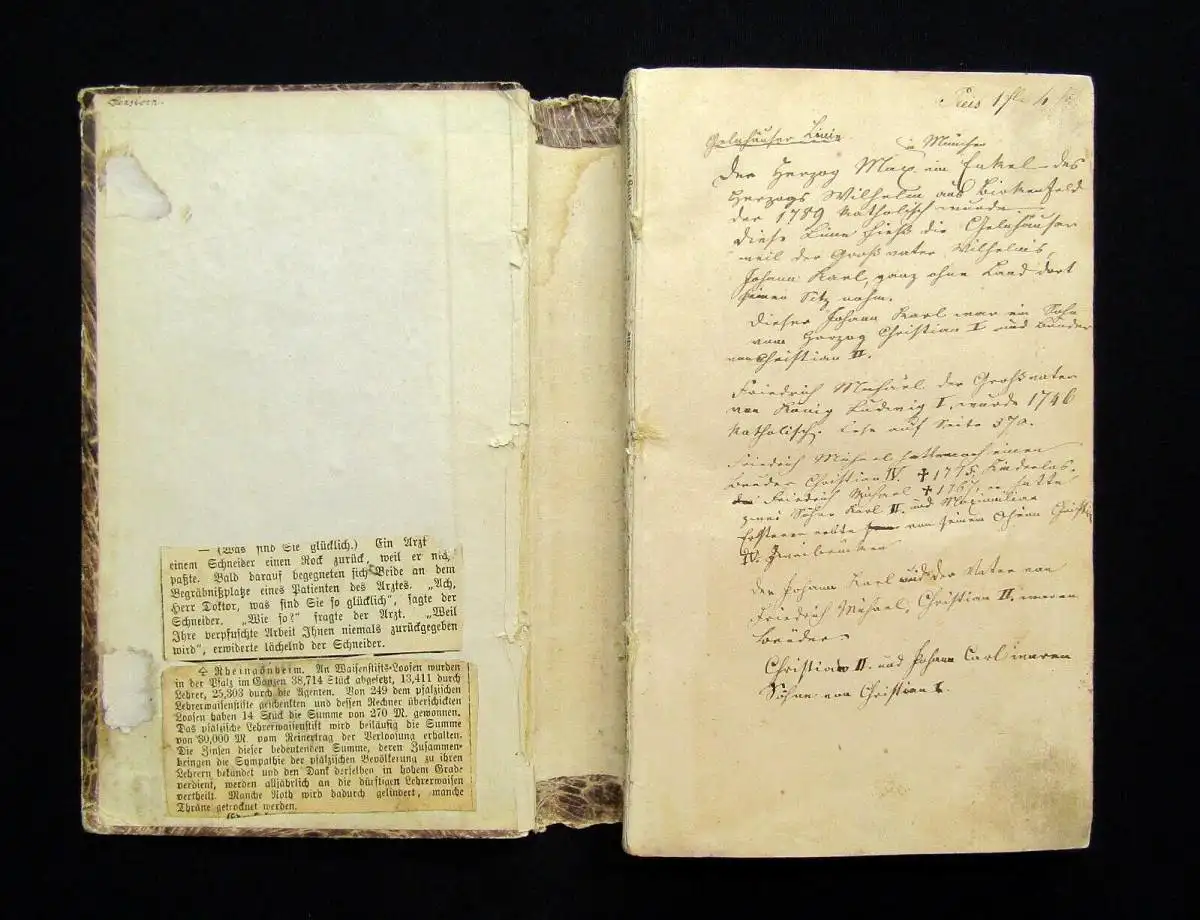 — (Was sind Sie glücklich.) Ein Arzt
einem Schneider einen Rock zurück, weil er nicht
paßte. Bald darauf begegneten sich Beide an dem
Begräbnißplatze eines Patienten des Arztes. „Ach,
Herr Doktor, was sind Sie so glücklich“, sagte der
Schneider. „Wie so?“ fragte der Arzt. „Weil
Ihre verpfuschte Arbeit Ihnen niemals zurückgegeben
wird“, erwiderte lächelnd der Schneider.
Rheingönheim. An Waisenstifts-Loosen wurden
in der Pfalz im Ganzen 38,714 Stück abgesetzt, 13,411 durch
Lehrer, 25,303 durch die Agenten. Von 249 dem pfälzischen
Lehrerwaisenstifte geschenkten und dessen Rechner überschickten
Loosen haben 14 Stück die Summe von 270 M. gewonnen.
Das pfälzische Lehrerwaisenstift wird beiläufig die Summe
von 30,000 M. vom Reinertrag der Verloosung erhalten.
Die Zinsen dieser bedeutenden Summe, deren Zusammen-
bringen die Sympathie der pfälzischen Bevölkerung zu ihren
Lehrern bekundet und den Dank derselben in hohem Grade
verdient, werden alljährlich an die dürftigen Lehrerwaisen
vertheilt. Manche Noth wird dadurch gelindert, manche
Thräne getrocknet werden.
Preis 1 fl. 4
Gelnhäuser Linie
in München
Der Herzog Max ein Enkel des
Herzogs Wilhelm aus Birkenfeld
der 1789 katholisch wurde
Diese Linie hieß die Gelnhäuser
weil der Großvater Wilhelms,
Johann Karl, ganz ohne Land dort
seinen Sitz nahm.
Dieser Johann Karl war ein Sohn
vom Herzog Christian I und Bruder
von Christian II.
Friedrich Michael der Großvater
von König Ludwig I, wurde 1746
katholisch. Lese auf Seite 570.
Friedrich Michael hatte noch einen
Bruder Christian IV. † 1775, Kinderlos.
Friedrich Michael † 1767, er hatte
zwei Söhne Karl II. und Maximilian
Ersterer erbte von seinem Oheim Christian
IV. Zweibrücken
Der Johann Karl und der Vater von
Friedrich Michael, Christian II. waren
Brüder.
Christian II. und Johann Carl waren
Söhne von Christian I.